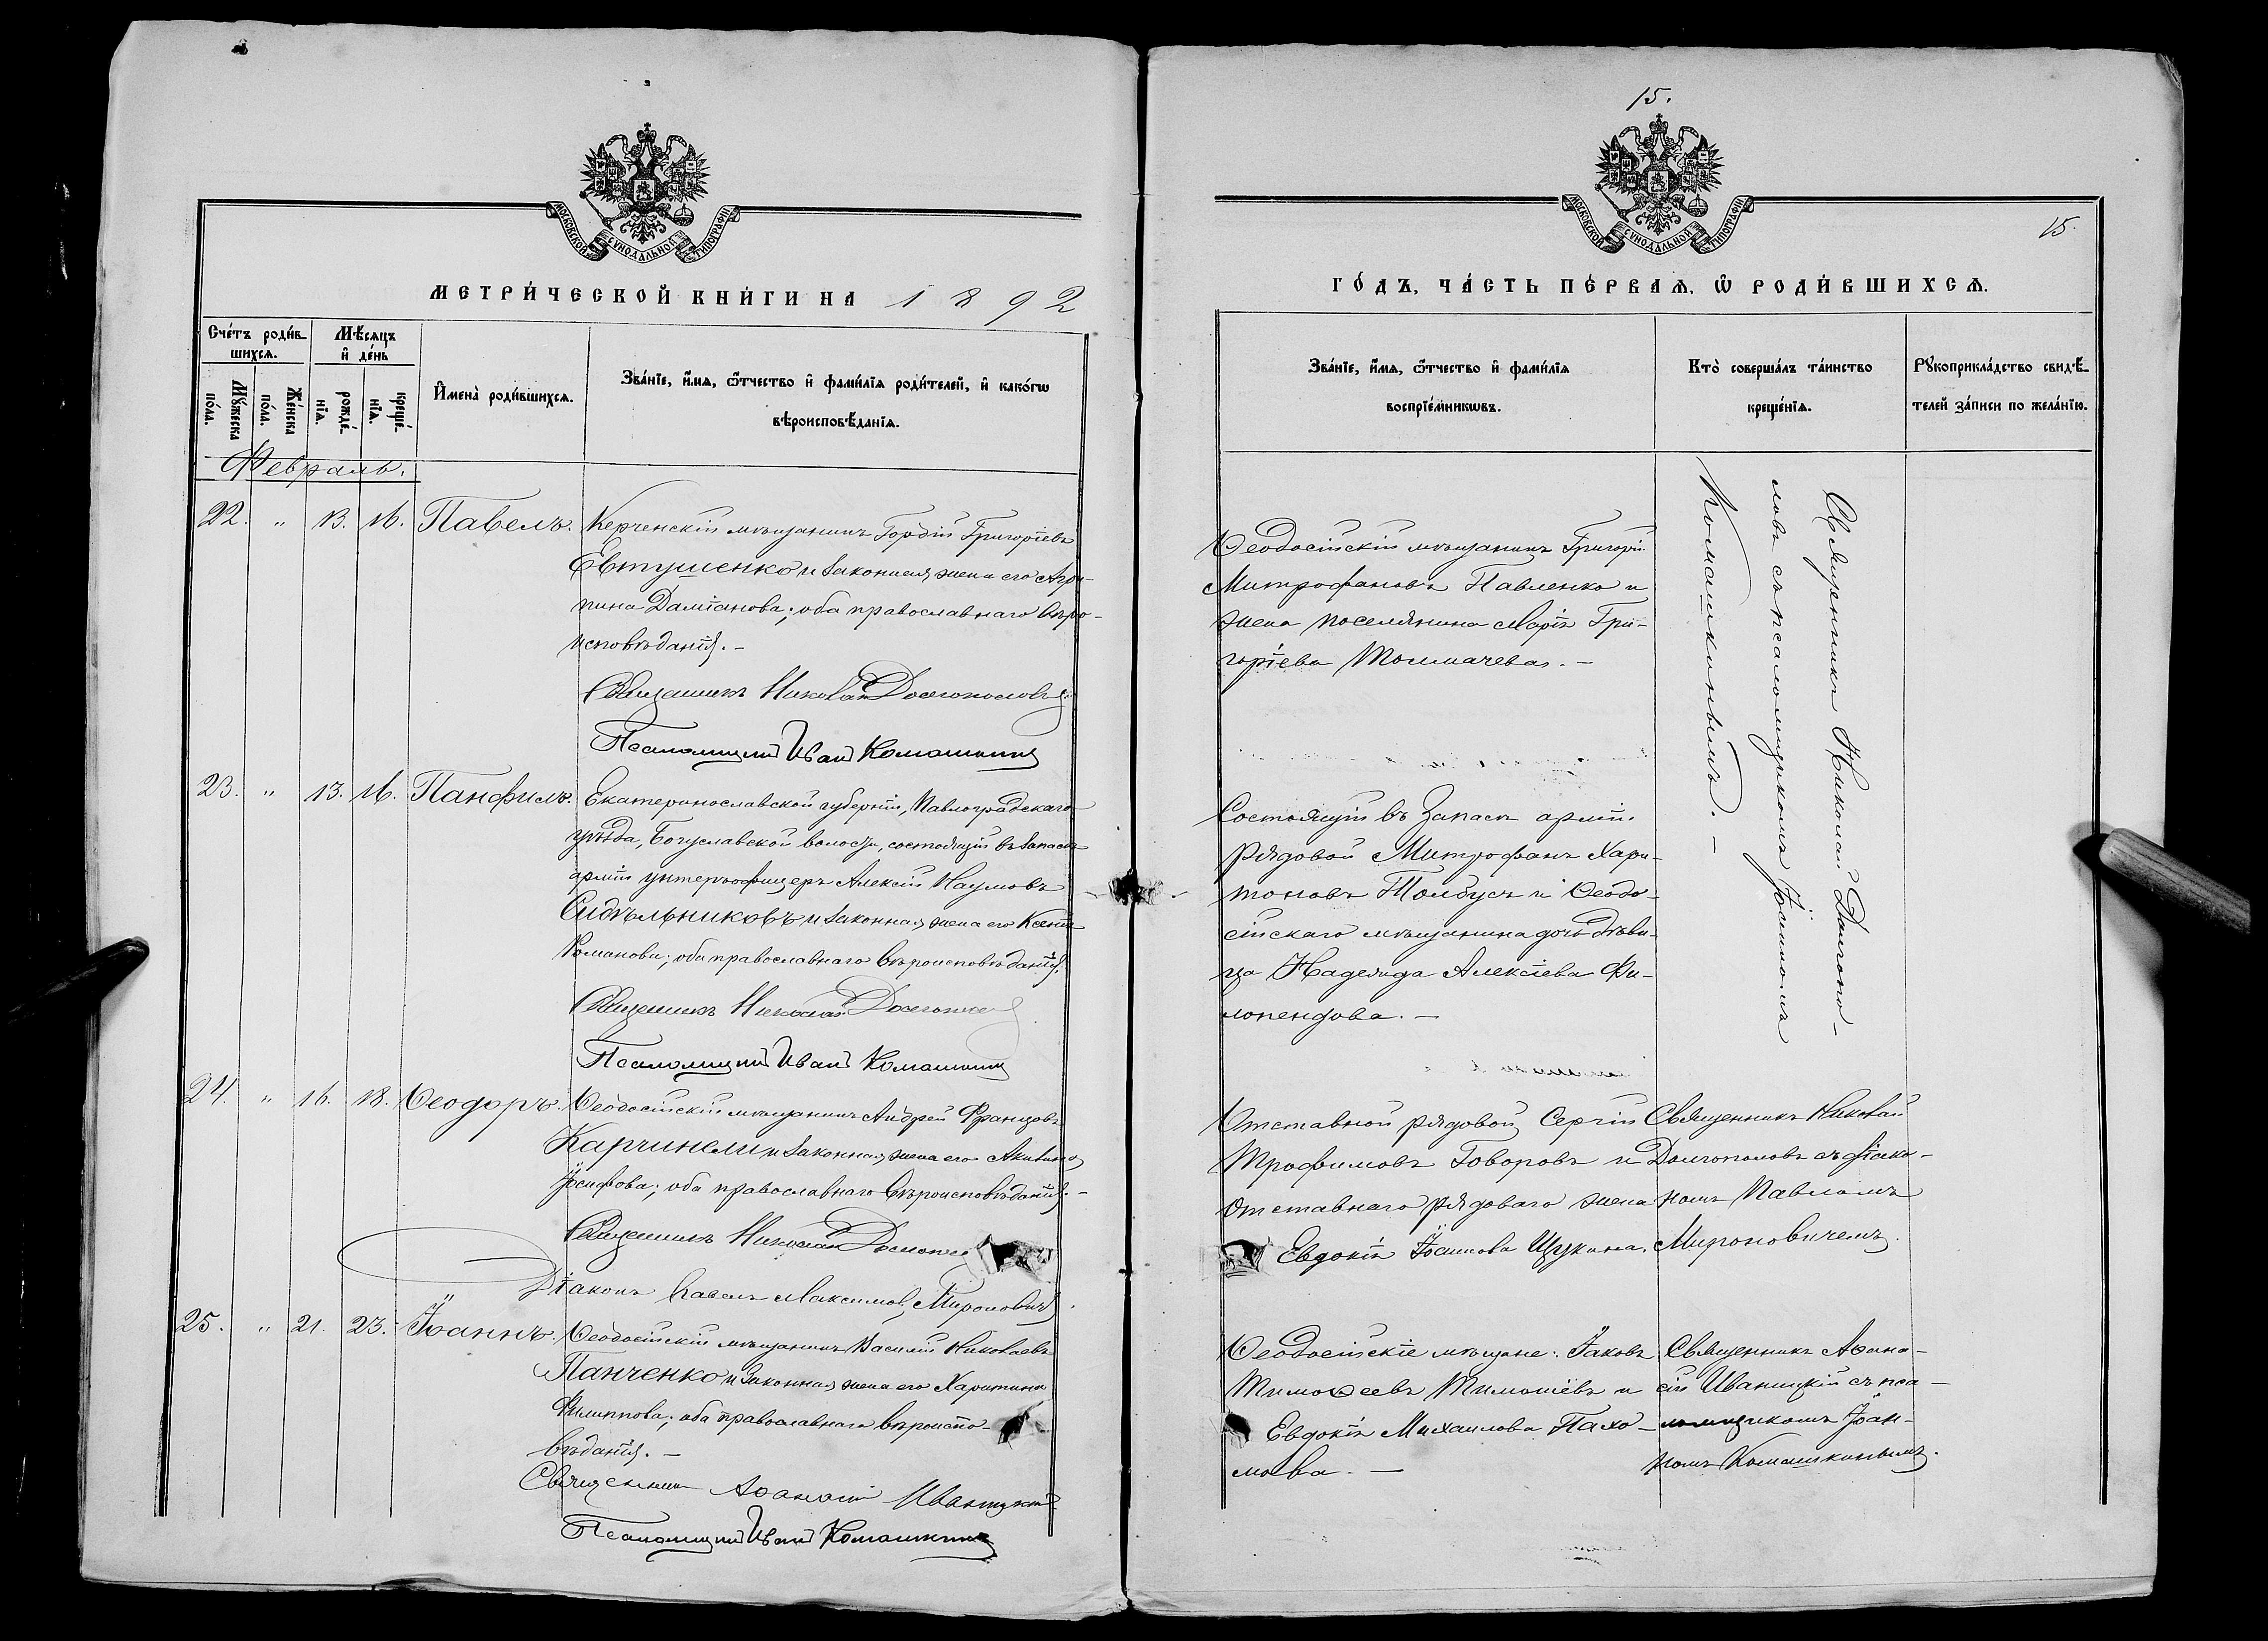 МОСКОВСКОЙ СѴНОДАЛЬНОЙ ТИПОГРАФІИ
МЕТРИ́ЧЕСКОЙ КНИ́ГИ НА 1892
Сче́тъ роди́в-
шихсѧ.
Мѣ́сяцъ
и҆ де́нь
Мꙋ́жеска
по́ла.
Же́нска
по́ла.
рожде́-
нїѧ.
креще́-
нїѧ.
И҆мена̀ роди́вшихсѧ.
Зва́нїе, и҆́мѧ, ѻ҆́тчество и҆ фами́лїѧ роди́телей, и҆ како́гѡ
вѣроисповѣ́данїѧ.
Февраль.
22. " 13. 16. Павелъ.
Керченскій мѣщанинъ Гордій Григоріевъ
Евтушенко и законная жена его Агри-
пина Даміанова; оба православнаго вѣро-
исповѣданія. –
Священникъ Николай Долгополовъ
Псаломщикъ Иван Комашкинъ
23. " 13. 16. Панфилъ.
Екатеринославской губерніи, Павлоградскаго
уѣзда, Богуславской волости, состоящій въ запасѣ
арміи унтеръ-офицеръ Алексій Наумовъ
Сидѣльниковъ и законная жена его Ксенія
Романова; оба православнаго вѣроисповѣданія.
Священникъ Николай
Псаломщикъ Иван Комашкинъ
24. " 16. 18. Ѳеодоръ.
Ѳеодосійскій мѣщанинъ Андрей Францовъ
Карчинели и законная жена его Акилина
Іосифова; оба православнаго вѣроисповѣданія. –
Священникъ Николай
Діаконъ Павелъ Максимов. Миронович
25. " 21. 23. Іоаннъ.
Ѳеодосійскій мѣщанинъ Василій Николаевъ
Панченко и законная жена его Харитина
Филиппова; оба православнаго вѣроиспо-
вѣданія. –
Священник Аѳанасій Иваницкій
Псаломщикъ Иван Комашкинъ
15.
МОСКОВСКОЙ СѴНОДАЛЬНОЙ ТИПОГРАФІИ
15.
ГО́ДЪ, ЧА́СТЬ ПЕ́РВАѦ, Ѡ҆ РОДИ́ВШИХСѦ.
Зва́нїе, и҆́мѧ, ѻ҆́тчество и҆ фами́лїѧ
воспрїе́мникѡвъ.
Кто̀ соверша́лъ та́инство
креще́нїѧ.
Рꙋкоприкла́дство свидѣ́-
телей за́писи по жела́нїю.
Ѳеодосійскій мѣщанинъ Григорій
Митрофановъ Павленко и
жена поселянина Марія Гри-
горіева Толмачева. –
Священникъ Николай Долгопо-
ловъ съ псаломщикомъ Іоанномъ
Комашкинымъ. –
Состоящій въ запасѣ арміи
рядовой Митрофанъ Хари-
тоновъ Толбусъ и Ѳеодо-
сійскаго мѣщанина дочь дѣви-
ца Надежда Алексіева Фи-
лопендова. –
Отставной рядовой Сергій
Трофимовъ Говоровъ и
отставнаго рядоваго жена
Евдокія Іоаннова Щукина.
Священникъ Николай
Долгополовъ съ діако-
номъ Павломъ
Мироновичемъ.
Ѳеодосійскіе мѣщане: Іаковъ
Тимоѳеевъ Тимошевъ и
Евдокія Михаилова Пахо-
мова. –
Священникъ Аѳана-
сій Иваницкій съ пса-
ломщикомъ Іоан-
номъ Комашкинымъ.